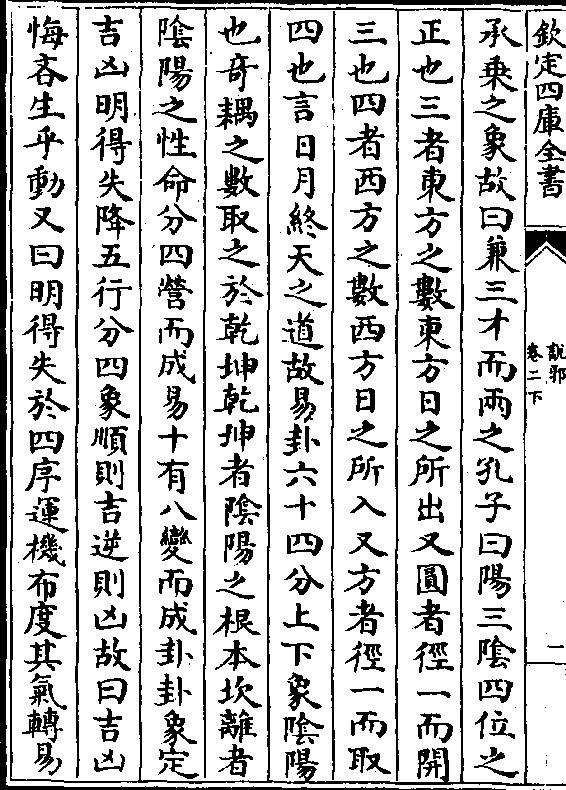 欽定四庫全書
說郛
卷二下
二
承乗之象故曰兼三才而兩之孔子曰陽三陰四位之
正也三者東方之數東方日之所出又圓者徑一而開
三也四者西方之數西方日之所入又方者徑一而取
四也言日月終天之道故易卦六十四分上下象陰陽
也奇耦之數取之於乾坤乾坤者陰陽之根本坎離者
陰陽之性命分四營而成易十有八變而成卦卦象定
吉凶明得失降五行分四象順則吉逆則凶故曰吉凶
悔吝生乎動又曰明得失於四序運機布度其氣轉易